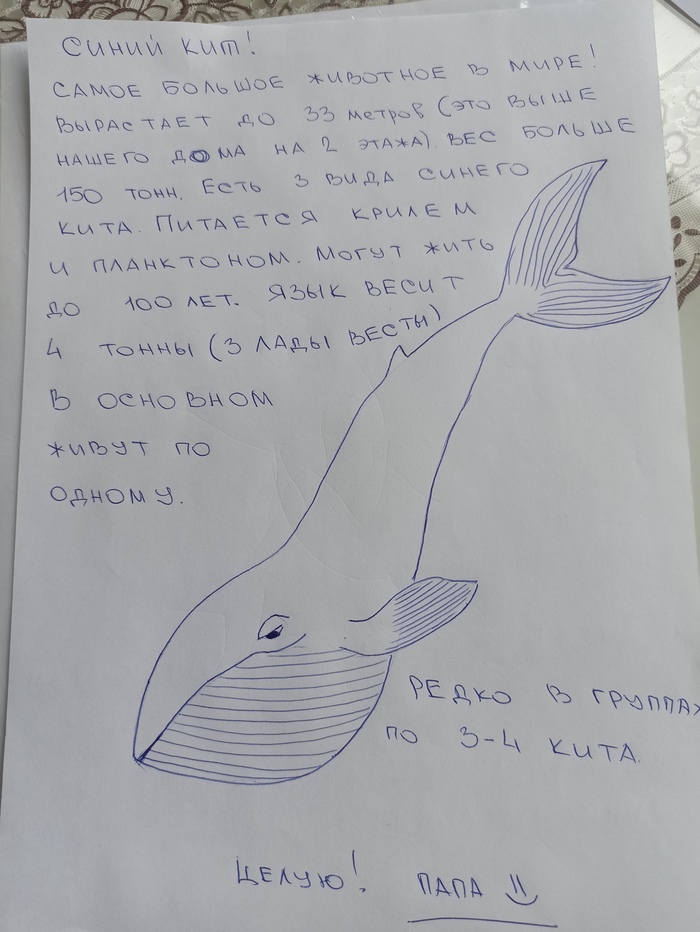 Синий кит!
Самое большое животное в мире!
Вырастает до 33 метров (это выше
нашего дома на 2 этажа). Вес больше
150 тонн. Есть 3 вида синего
кита. Питается крилем
и планктоном. Могут жить
до 100 лет. Язык весит
4 тонны (3 Лады Весты)
В основном
живут по
одному.
Редко в группах
по 3-4 кита.
Целую!
Папа =)